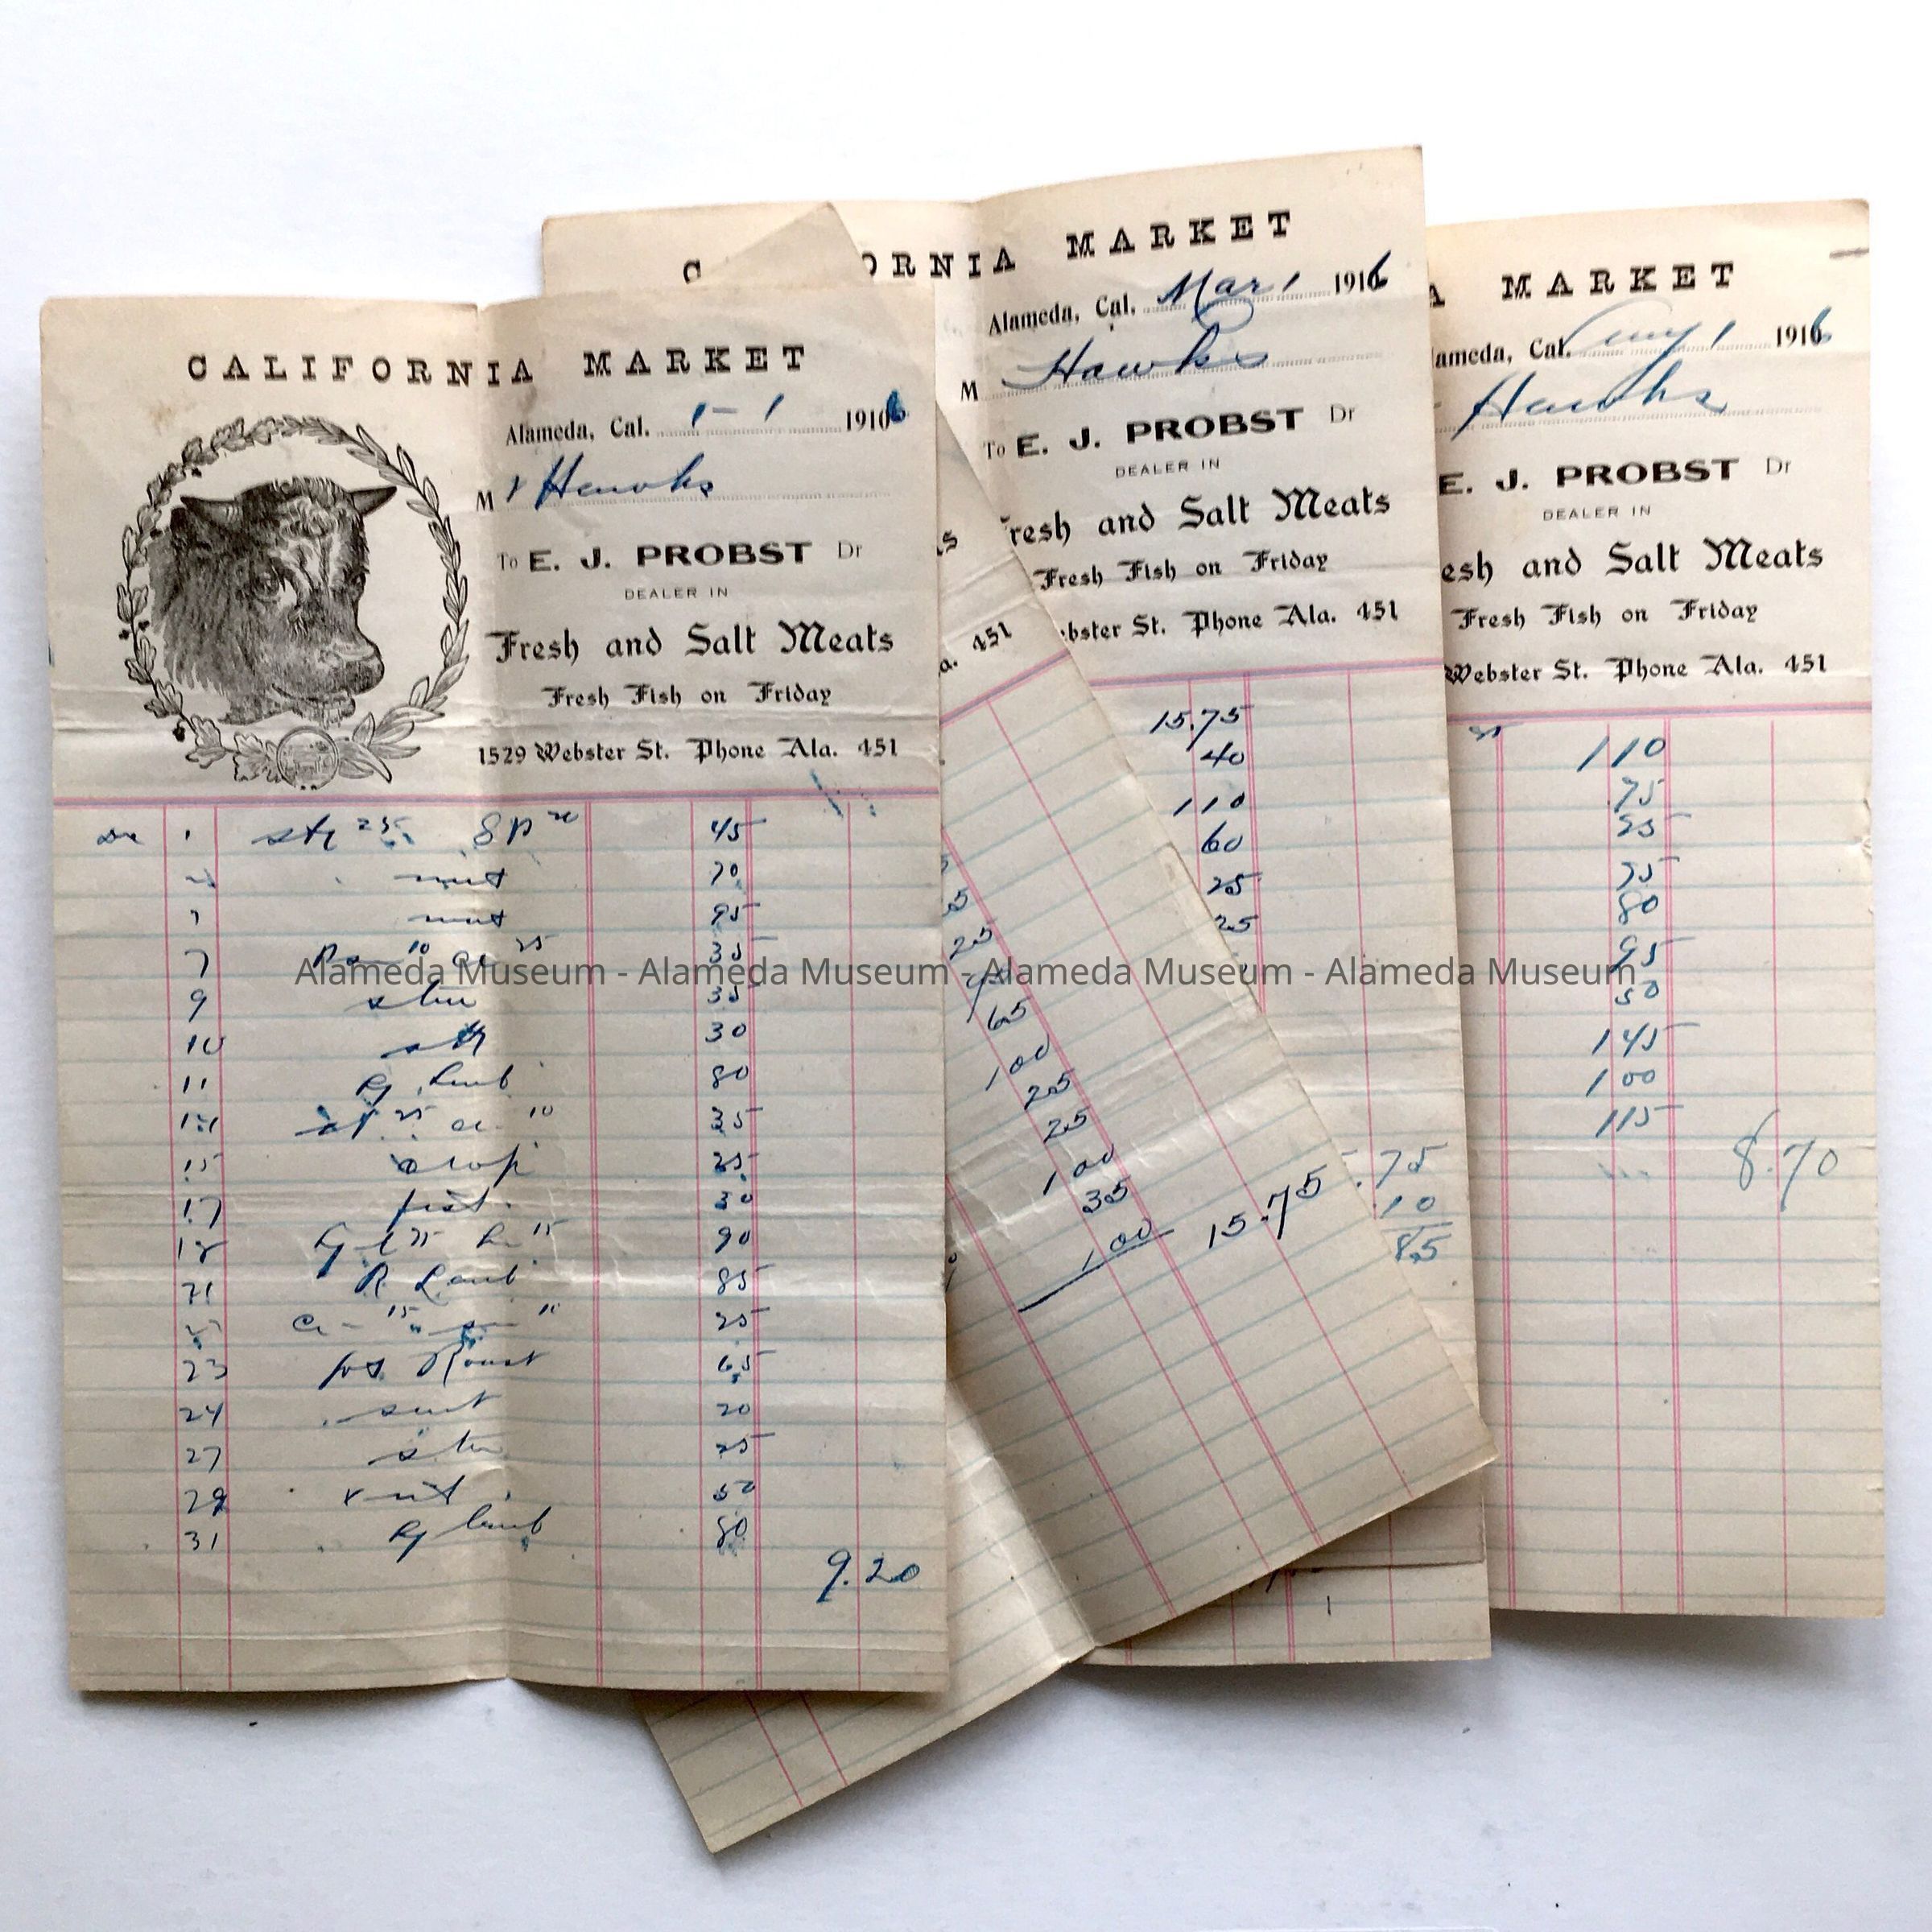 CALIFORNIA MARKET
Alameda, Cal. 1-1 1916
M Hawks
To E. J. PROBST Dr
DEALER IN
Fresh and Salt Meats
Fresh Fish on Friday
1529 Webster St. Phone Ala. 451
1 25 20 45
mut 70
mut 95
7 10 25 35
9 stew 35
10 30
11 Lg Lamb 80
25 10 35
15 chop 25
17 fish 30
18 Lg 75 15 90
21 R Lamb 85
15 10 25
23 Roast 65
24 20
27 25
29 50
31 Lg lamb 80
9.20
as
a. 451
5
25
65
100
25
25
100
35
100 15.75
C ORNIA MARKET
Alameda, Cal. Mar 1 1916
M Hawks
To E. J. PROBST Dr
DEALER IN
Fresh and Salt Meats
Fresh Fish on Friday
bster St. Phone Ala. 451
15.75
40
110
60
25
25
.75
10
85
A MARKET
lameda, Cal. 1 1916
Hawks
E. J. PROBST Dr
DEALER IN
esh and Salt Meats
Fresh Fish on Friday
Webster St. Phone Ala. 451
110
75
25
75
80
95
50
145
100
115
8.70
Alameda Museum - Alameda Museum - Alameda Museum - Alameda Museum